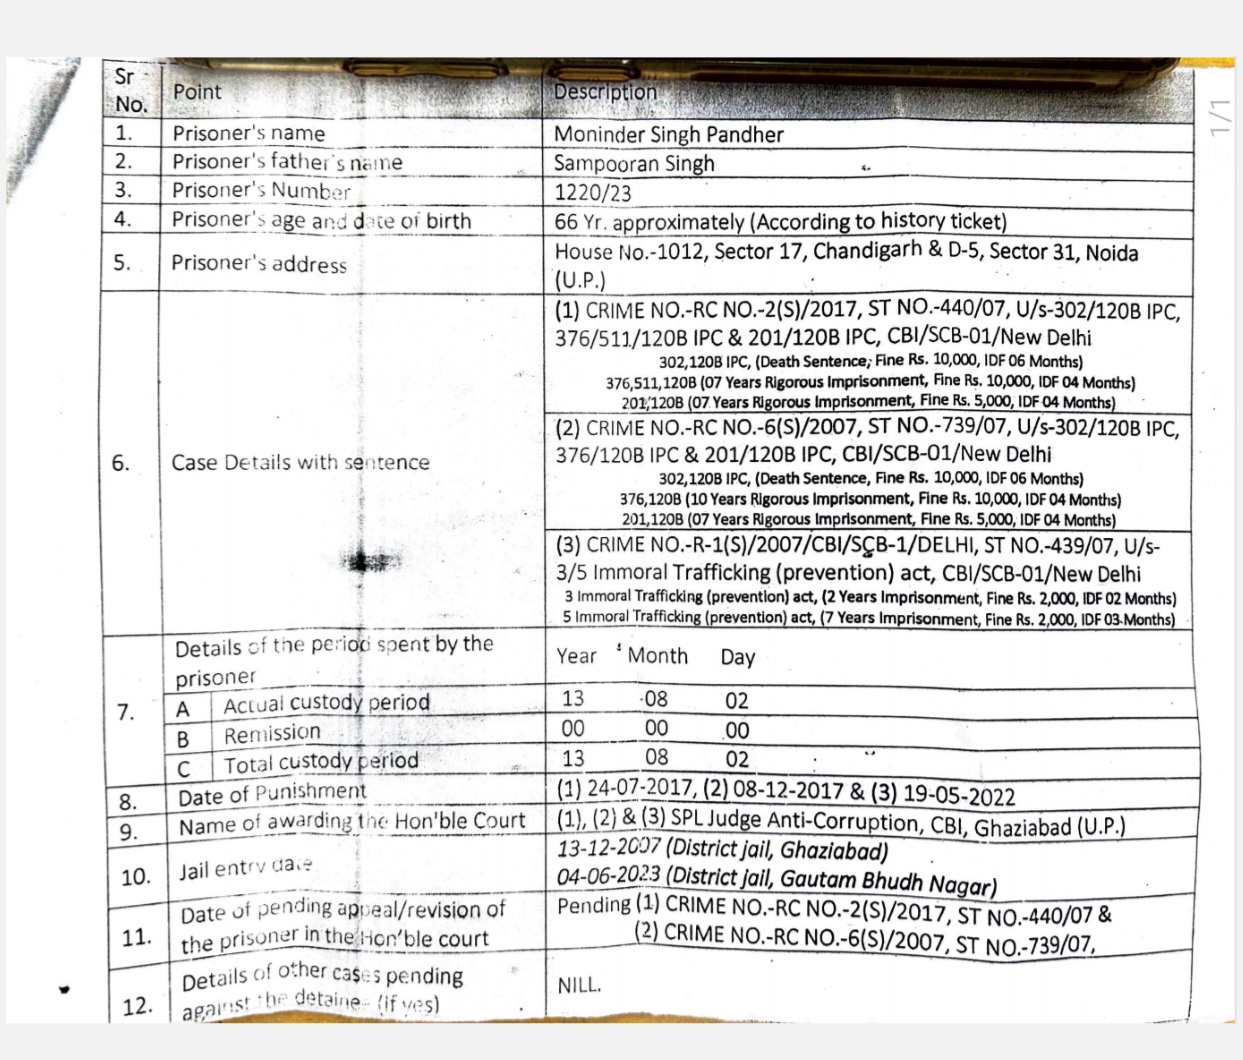 Sr No. Point Description
1. Prisoner's name Moninder Singh Pandher
2. Prisoner's father's name Sampooran Singh
3. Prisoner's Number 1220/23
4. Prisoner's age and date of birth 66 Yr. approximately (According to history ticket)
5. Prisoner's address House No.-1012, Sector 17, Chandigarh & D-5, Sector 31, Noida
(U.P.)
6. Case Details with sentence
(1) CRIME NO.-RC NO.-2(S)/2017, ST NO.-440/07, U/s-302/120B IPC,
376/511/120B IPC & 201/120B IPC, CBI/SCB-01/New Delhi
302,120B IPC, (Death Sentence, Fine Rs. 10,000, IDF 06 Months)
376,511,120B (07 Years Rigorous Imprisonment, Fine Rs. 10,000, IDF 04 Months)
201,120B (07 Years Rigorous Imprisonment, Fine Rs. 5,000, IDF 04 Months)
(2) CRIME NO.-RC NO.-6(S)/2007, ST NO.-739/07, U/s-302/120B IPC,
376/120B IPC & 201/120B IPC, CBI/SCB-01/New Delhi
302,120B IPC, (Death Sentence, Fine Rs. 10,000, IDF 06 Months)
376,120B (10 Years Rigorous Imprisonment, Fine Rs. 10,000, IDF 04 Months)
201,120B (07 Years Rigorous Imprisonment, Fine Rs. 5,000, IDF 04 Months)
(3) CRIME NO.-R-1(S)/2007/CBI/SCB-1/DELHI, ST NO.-439/07, U/s-
3/5 Immoral Trafficking (prevention) act, CBI/SCB-01/New Delhi
3 Immoral Trafficking (prevention) act, (2 Years Imprisonment, Fine Rs. 2,000, IDF 02 Months)
5 Immoral Trafficking (prevention) act, (7 Years Imprisonment, Fine Rs. 2,000, IDF 03 Months)
7. Details of the period spent by the
prisoner Year Month Day
A Actual custody period 13 08 02
B Remission 00 00 00
C Total custody period 13 08 02
8. Date of Punishment (1) 24-07-2017, (2) 08-12-2017 & (3) 19-05-2022
9. Name of awarding the Hon'ble Court (1), (2) & (3) SPL Judge Anti-Corruption, CBI, Ghaziabad (U.P.)
10. Jail entry date 13-12-2007 (District jail, Ghaziabad)
04-06-2023 (District jail, Gautam Bhudh Nagar)
11. Date of pending appeal/revision of
the prisoner in the Hon'ble court
Pending (1) CRIME NO.-RC NO.-2(S)/2017, ST NO.-440/07 &
(2) CRIME NO.-RC NO.-6(S)/2007, ST NO.-739/07,
12. Details of other cases pending
against the detainee (if yes) NILL.
1/1